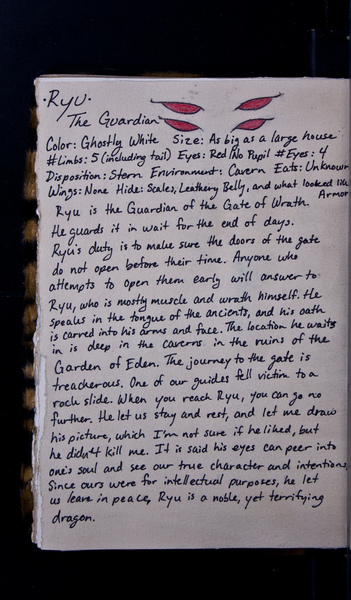 ·Ryu·
The Guardian
Color: Ghostly White Size: As big as a large house
#Limbs: 5 (including tail) Eyes: Red/No Pupil #Eyes: 4
Disposition: Stern Environment: Cavern Eats: Unknown
Wings: None Hide: Scales, Leathery Belly, and what looked like
Armor
Ryu is the Guardian of the Gate of Wrath.
He guards it in wait for the end of days.
Ryu's duty is to make sure the doors of the gate
do not open before their time. Anyone who
attempts to open them early will answer to
Ryu, who is mostly muscle and wrath himself. He
speaks in the tongue of the ancients, and his oath
is carved into his arms and face. The location he waits
in is deep in the caverns in the ruins of the
Garden of Eden. The journey to the gate is
treacherous. One of our guides fell victim to a
rock slide. When you reach Ryu, you can go no
further. He let us stay and rest, and let me draw
his picture, which I'm not sure if he liked, but
he didn't kill me. It is said his eyes can peer into
one's soul and see our true character and intentions.
Since ours were for intellectual purposes, he let
us leave in peace, Ryu is a noble, yet terrifying
dragon.